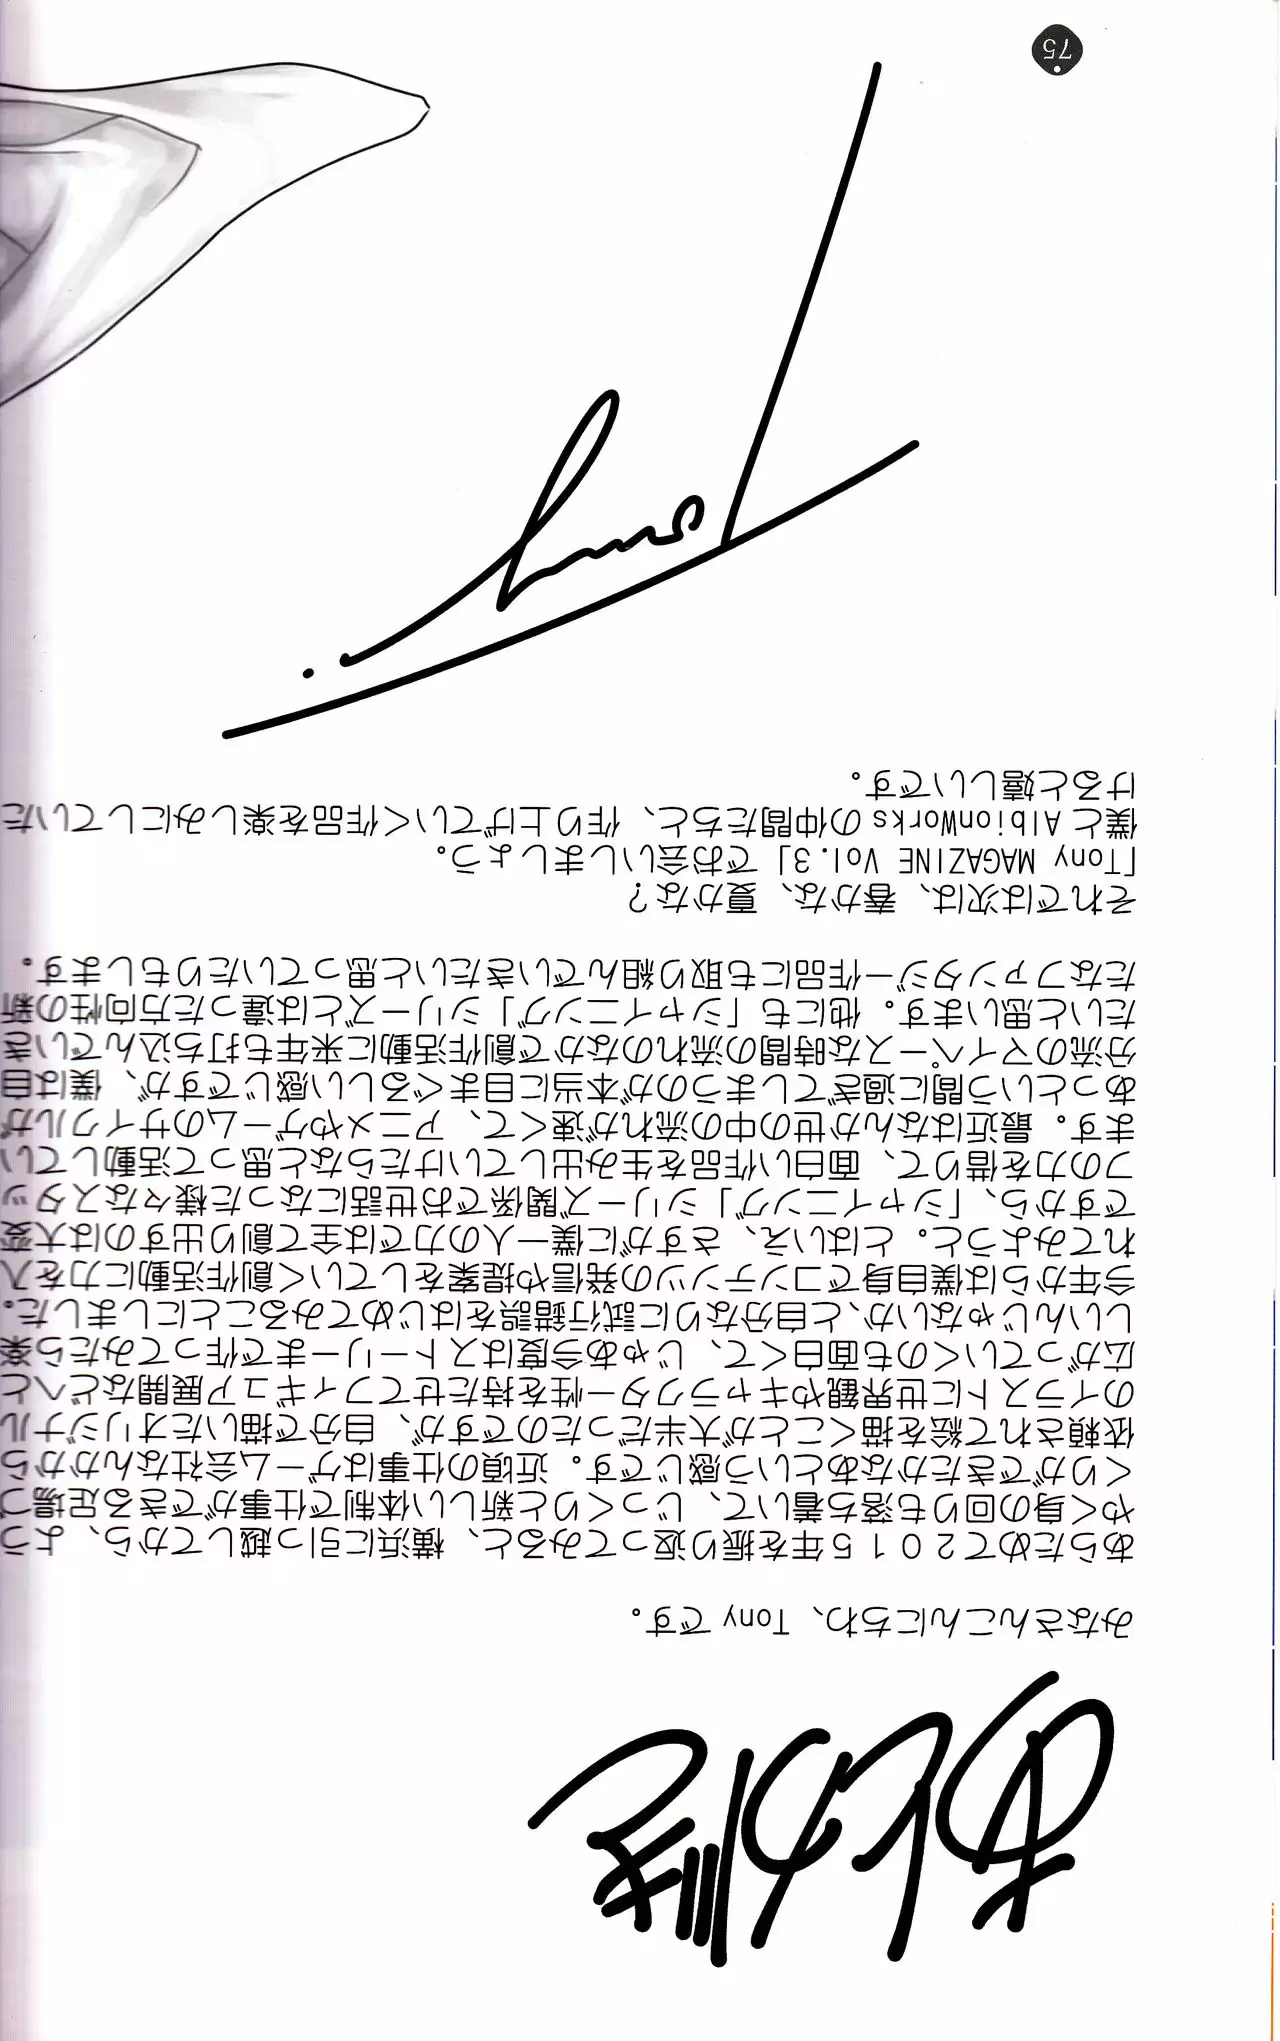 あとがき
みなさんこんにちわ、Tonyです。
あらためて２０１５年を振り返ってみると、横浜に引っ越してから、よう
やく身の回りも落ち着いて、じっくりと新しい体制で仕事ができる足場づ
くりができたかなあという感じです。近頃の仕事はゲーム会社なんかから
依頼されて絵を描くことが大半だったのですが、自分で描いたオリジナル
のイラストに世界観やキャラクター性を持たせてフィギュア展開などへと
広がっていくのも面白くて、じゃあ今度はストーリーまで作ってみたら楽
しいんじゃないか、と自分なりに試行錯誤をはじめてみることにしました。
今年からは僕自身でコンテンツの発信や提案をしていく創作活動に力を入
れてみようと。とはいえ、さすがに僕一人の力では全て創り出すのは大変
ですから、「シャイニング」シリーズ関係でお世話になった様々なスタッ
フの力を借りて、面白い作品を生み出していけたらなと思って活動してい
ます。最近はなんか世の中の流れが速くて、アニメやゲームのサイクルが
あっという間に過ぎてしまうのが本当に目まぐるしい感じですが、僕は自
分流のマイペースな時間の流れのなかで創作活動に来年も打ち込んでいき
たいと思います。他にも「シャイニング」シリーズとは違った方向性の新
たなファンタジー作品にも取り組んでいきたいと思っていたりもします。
それでは次は、春かな、夏かな？
「Tony MAGAZINE Vol.3」でお会いしましょう。
僕とAlbionWorksの仲間たちと、作り上げていく作品を楽しみにしていた
けると嬉しいです。
Tony.
75